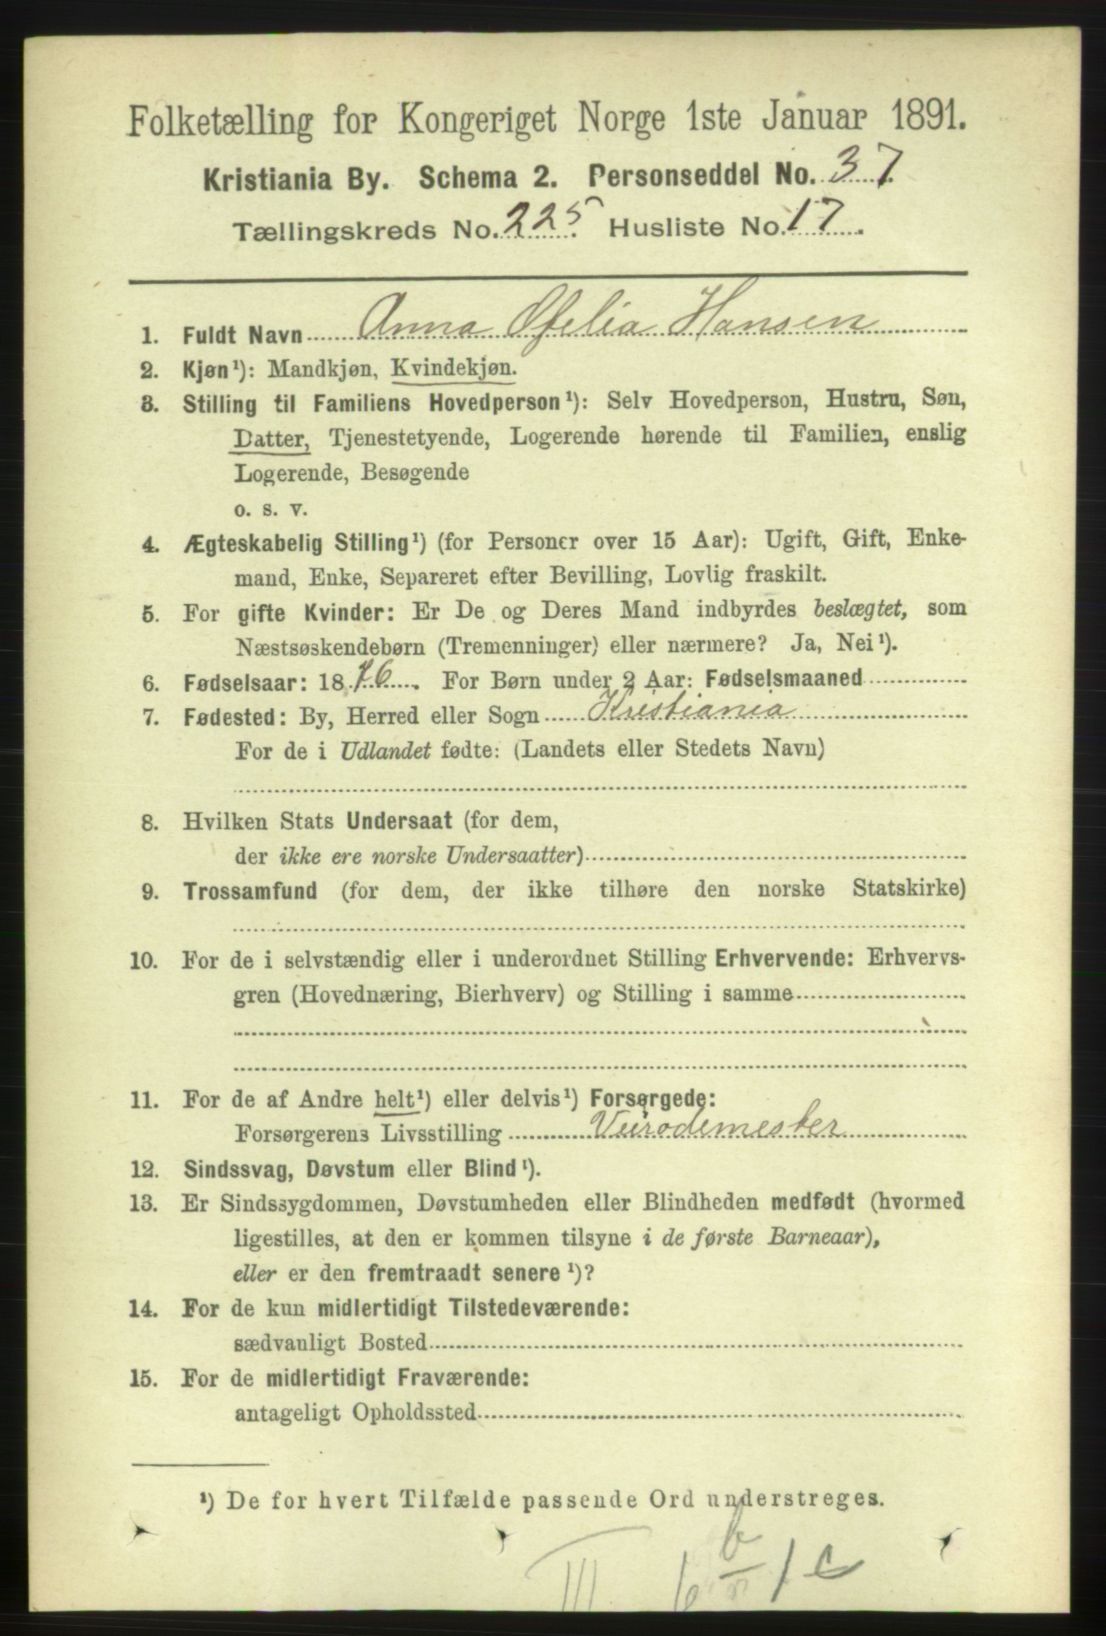 Folketælling for Kongeriget Norge 1ste Januar 1891.
Kristiania By. Schema 2. Personseddel No. 37
Tællingskreds No. 225 Husliste No. 17.
1. Fuldt Navn Anna Ofelia Hansen
2. Kjøn¹): Mandkjøn, Kvindekjøn.
3. Stilling til Familiens Hovedperson¹): Selv Hovedperson, Hustru, Søn,
Datter, Tjenestetyende, Logerende hørende til Familien, enslig
Logerende, Besøgende
o. s. v.
4. Ægteskabelig Stilling¹) (for Personer over 15 Aar): Ugift, Gift, Enke-
mand, Enke, Separeret efter Bevilling, Lovlig fraskilt.
5. For gifte Kvinder: Er De og Deres Mand indbyrdes beslægtet, som
Næstsøskendebørn (Tremenninger) eller nærmere? Ja, Nei¹).
6. Fødselsaar: 1876. For Børn under 2 Aar: Fødselsmaaned
7. Fødested: By, Herred eller Sogn Kristiania
For de i Udlandet fødte: (Landets eller Stedets Navn)
8. Hvilken Stats Undersaat (for dem,
der ikke ere norske Undersaatter)
9. Trossamfund (for dem, der ikke tilhøre den norske Statskirke)
10. For de i selvstændig eller i underordnet Stilling Erhvervende: Erhvervs-
gren (Hovednæring, Bierhverv) og Stilling i samme
11. For de af Andre helt¹) eller delvis¹) Forsørgede:
Forsørgerens Livsstilling Veirodemester
12. Sindssvag, Døvstum eller Blind¹).
13. Er Sindssygdommen, Døvstumheden eller Blindheden medfødt (hvormed
ligestilles, at den er kommen tilsyne i de første Barneaar),
eller er den fremtraadt senere¹)?
14. For de kun midlertidigt Tilstedeværende:
sædvanligt Bosted
15. For de midlertidigt Fraværende:
antageligt Opholdssted
¹) De for hvert Tilfælde passende Ord understreges.
III 6